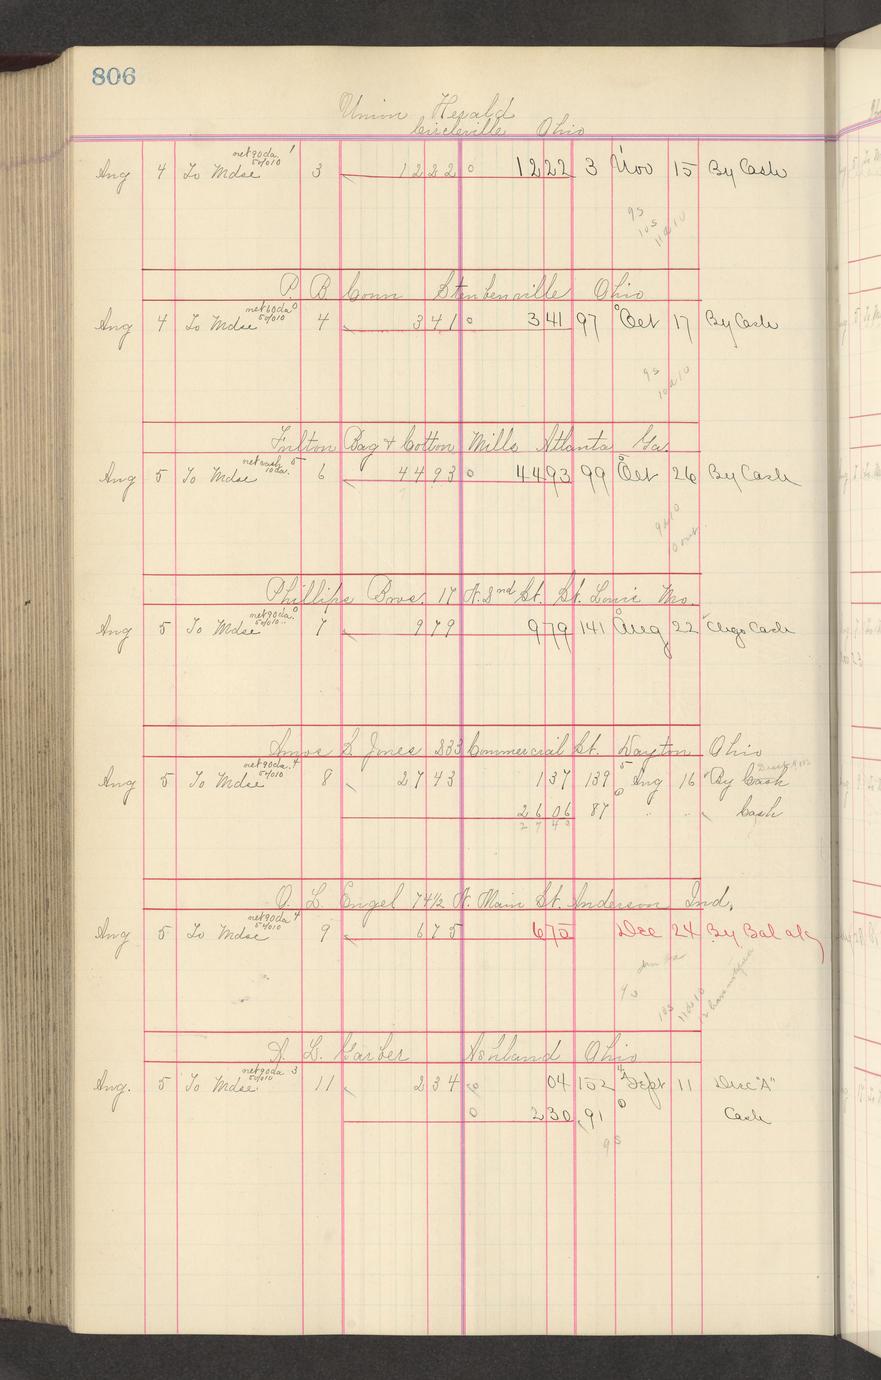 806
Union Herald
Circleville Ohio
Aug 4 To Mdse net 90 da 5%10 1 3 1222 0 1222 3 Nov 15 By Cash
9s
10s
11d10
P. B. Conn Steubenville Ohio
Aug 4 To Mdse net 60 da 5%10 0 4 341 0 341 97 0 Oct 17 By Cash
9s
10d10
Fulton Bag & Cotton Mills Atlanta Ga.
Aug 5 To Mdse net cash 10 da. 5 6 4493 0 4493 99 0 Oct 26 By Cash
9d10
Phillips Bros. 17 N. 2nd St. St. Louis Mo.
Aug 5 To Mdse net 90 da. 5%10 0 7 979 979 141 0 Aug 22 Chgo Cash
Amos L Jones 233 Commercial St. Dayton Ohio
Aug 5 To Mdse net 90 da. 5%10 4 8 2743 137 139 5 Aug 16 By Cash
2606 87 0 " " Cash
2743
O. L. Engel 74 1/2 N. Main St. Anderson Ind.
Aug 5 To Mdse net 90 da 5%10 4 9 675 675 Dec 24 By Bal
10s
11d10
A. L. Garber Ashland Ohio
Aug. 5 To Mdse net 90 da 5%10 3 11 234 04 152 4 Sept 11 Disc "A"
0 230 91 0 Cash
9s